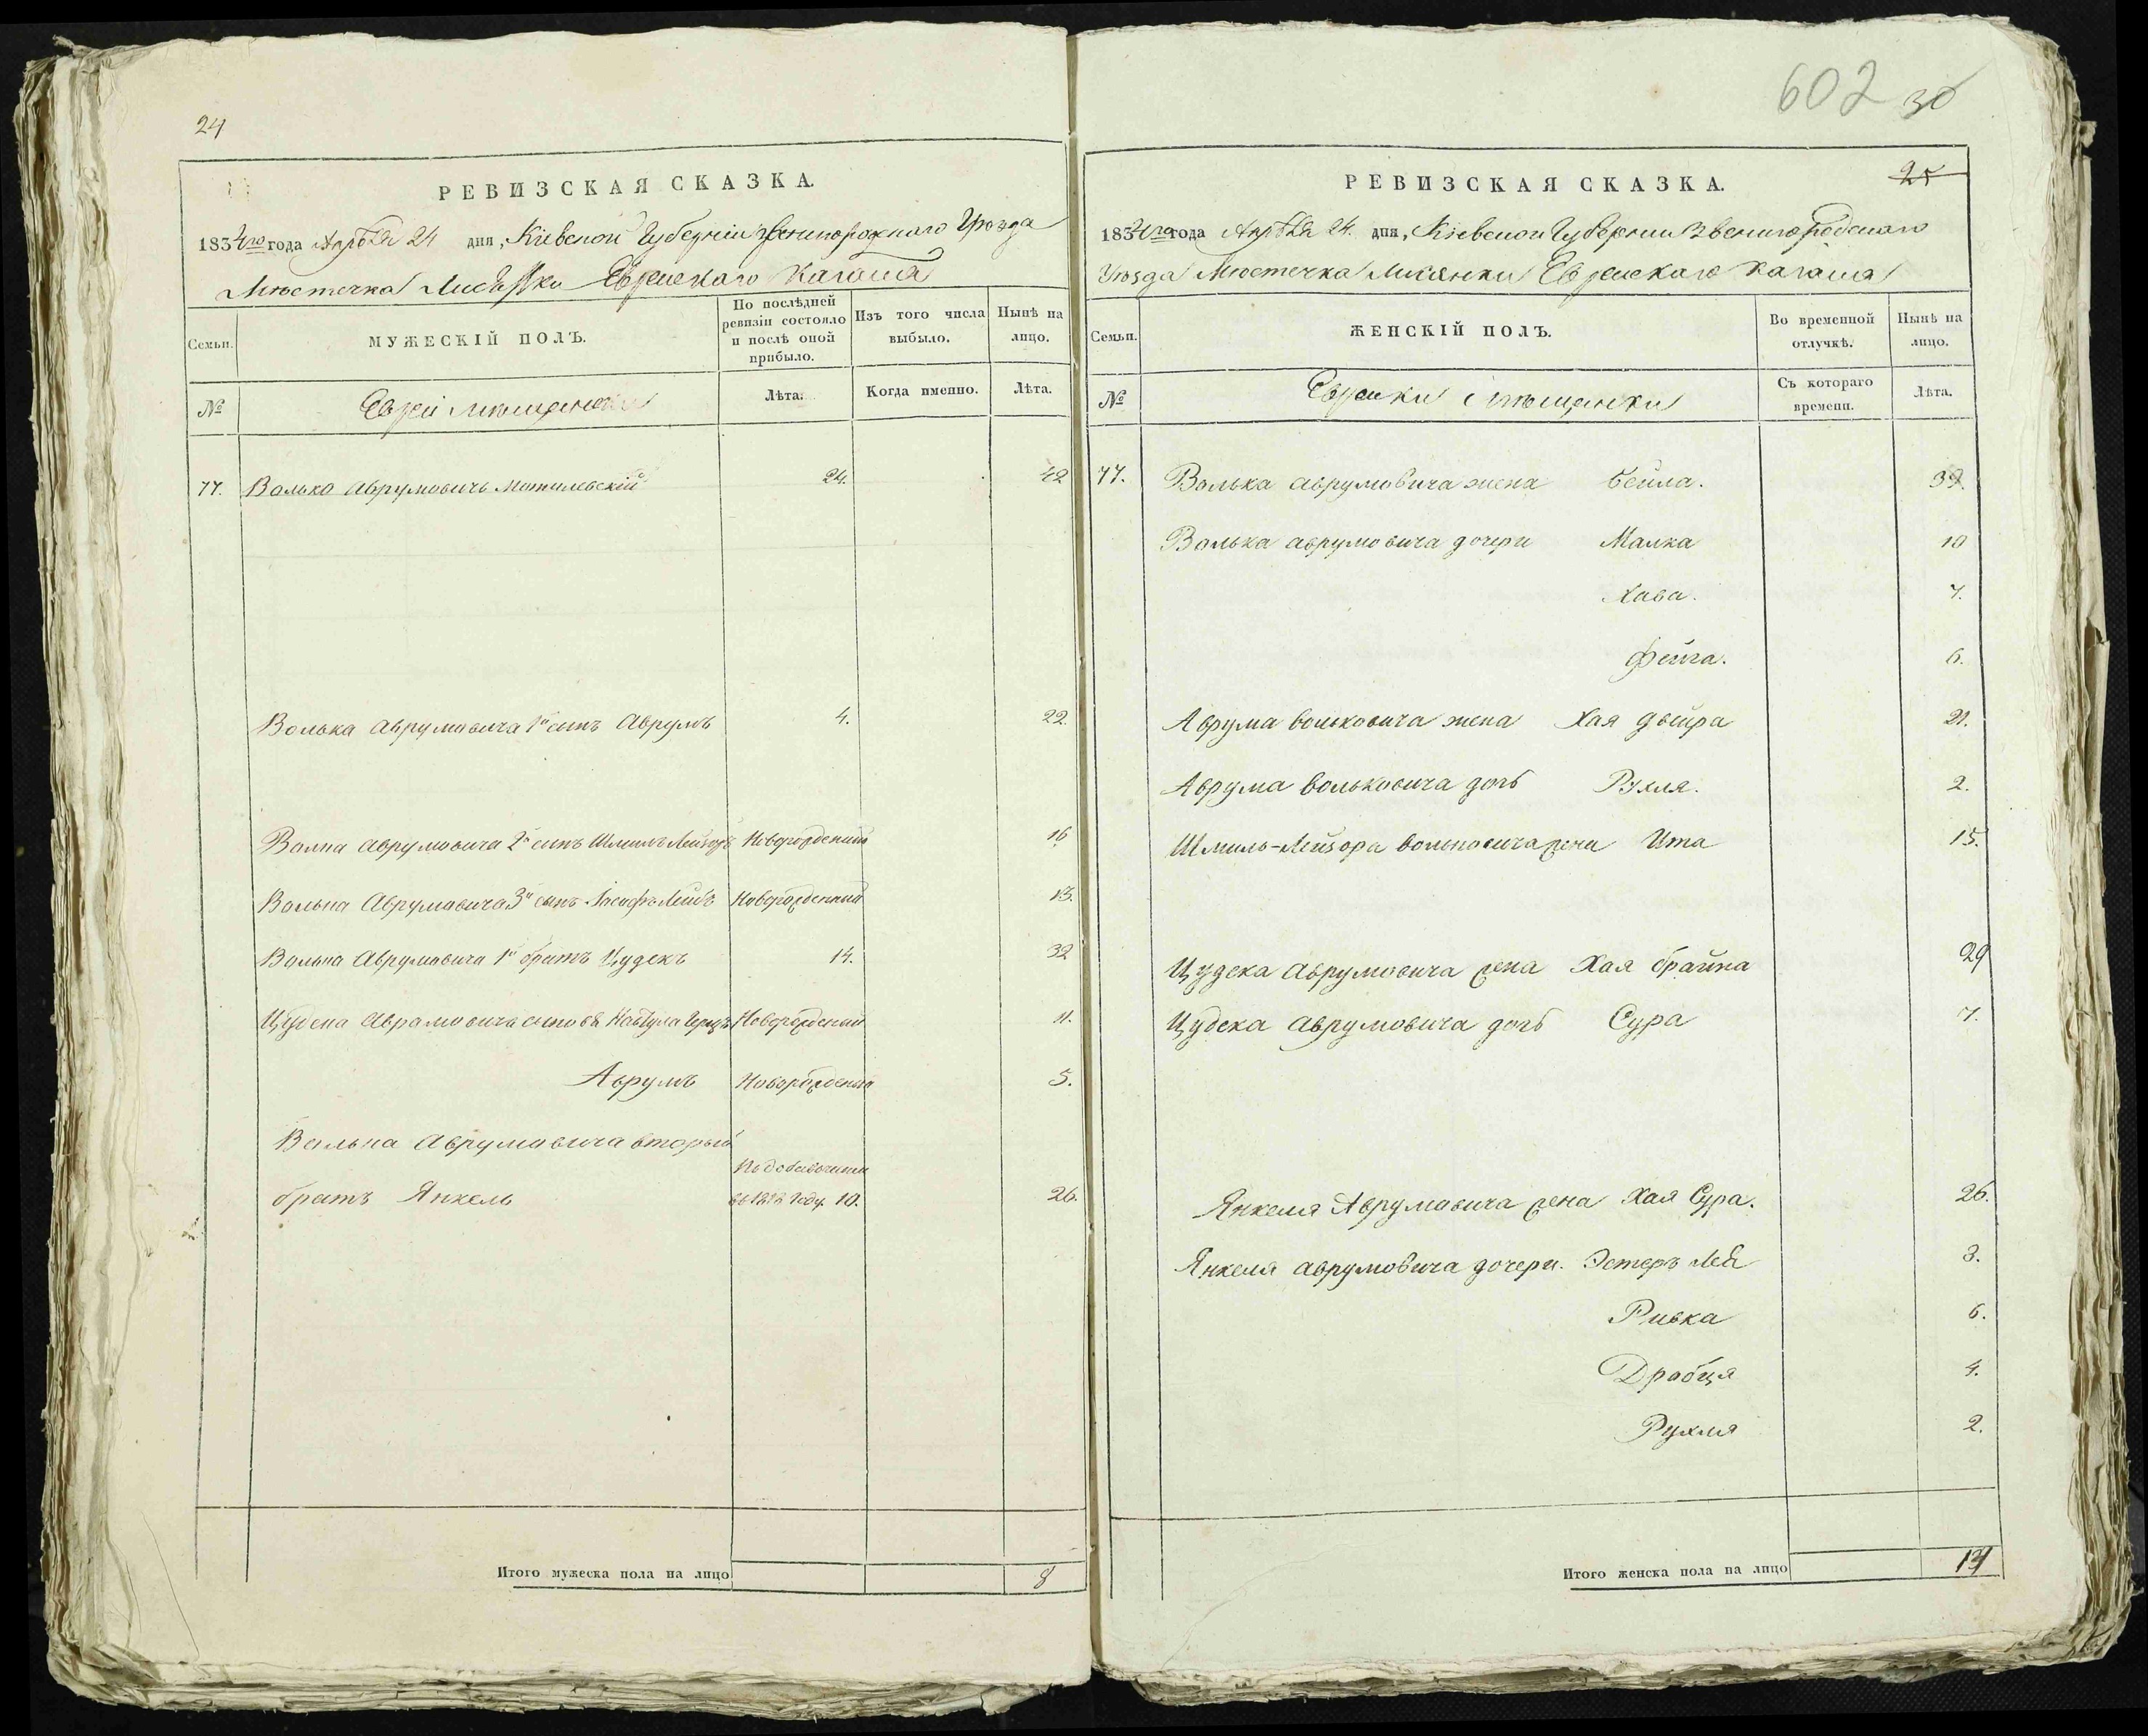 24
РЕВИЗСКАЯ СКАЗКА.
1834го года Апрѣля 24 дня, Кіевской Губерніи Звенигородскаго Уѣзда
Мѣстечка Лисянки Еврейскаго Кагала
Семьи.
МУЖЕСКІЙ ПОЛЪ.
По послѣдней ревизіи состояло и послѣ оной прибыло.
Изъ того числа выбыло.
Нынѣ на лицо.
№
Евреи мѣщане
Лѣта.
Когда именно.
Лѣта.
77. Волько Аврумовичъ 24. 42
Волька Аврумовича 1й сынъ Аврумъ 4. 22.
Волька Аврумовича 2й сынъ Шмиль Лейзоръ Новорожденный 16
Волька Аврумовича 3й сынъ Новорожденный 13.
Волька Аврумовича 1й братъ Цудекъ 14. 32
Цудека Аврамовича сыновья Новорожденый 11.
Аврумъ Новорожденый 5.
Волька Аврумовича вторый
братъ Янкель 10. 26.
Итого мужеска пола на лицо 8
602 30
25
РЕВИЗСКАЯ СКАЗКА.
1834го года Апрѣля 24. дня, Кіевской Губерніи Звенигородскаго
Уѣзда Мѣстечка Лисянки Еврейскаго Кагала
Семьи.
ЖЕНСКІЙ ПОЛЪ.
Во временной отлучкѣ.
Нынѣ на лицо.
№
Еврейки мѣщанки
Съ котораго времени.
Лѣта.
77. Волька Аврумовича жена Бейла. 39.
Волька Аврумовича дочери Малка 10
Хава. 7.
Фейга. 6.
Аврума Вольковича жена Хая Двейра 21.
Аврума Вольковича дочь Рухля. 2.
Шмиль-Лейзора Вольковича жена Ита 15.
Цудека Аврумовича жена Хая Брайна 29
Цудека Аврумовича дочь Сура 7.
Янкеля Аврумовича жена Хая Сура. 26.
Янкеля Аврумовича дочери. Эстеръ Лея 8.
Ривка 6.
Драбця 4.
Рухля 2.
Итого женска пола на лицо 14